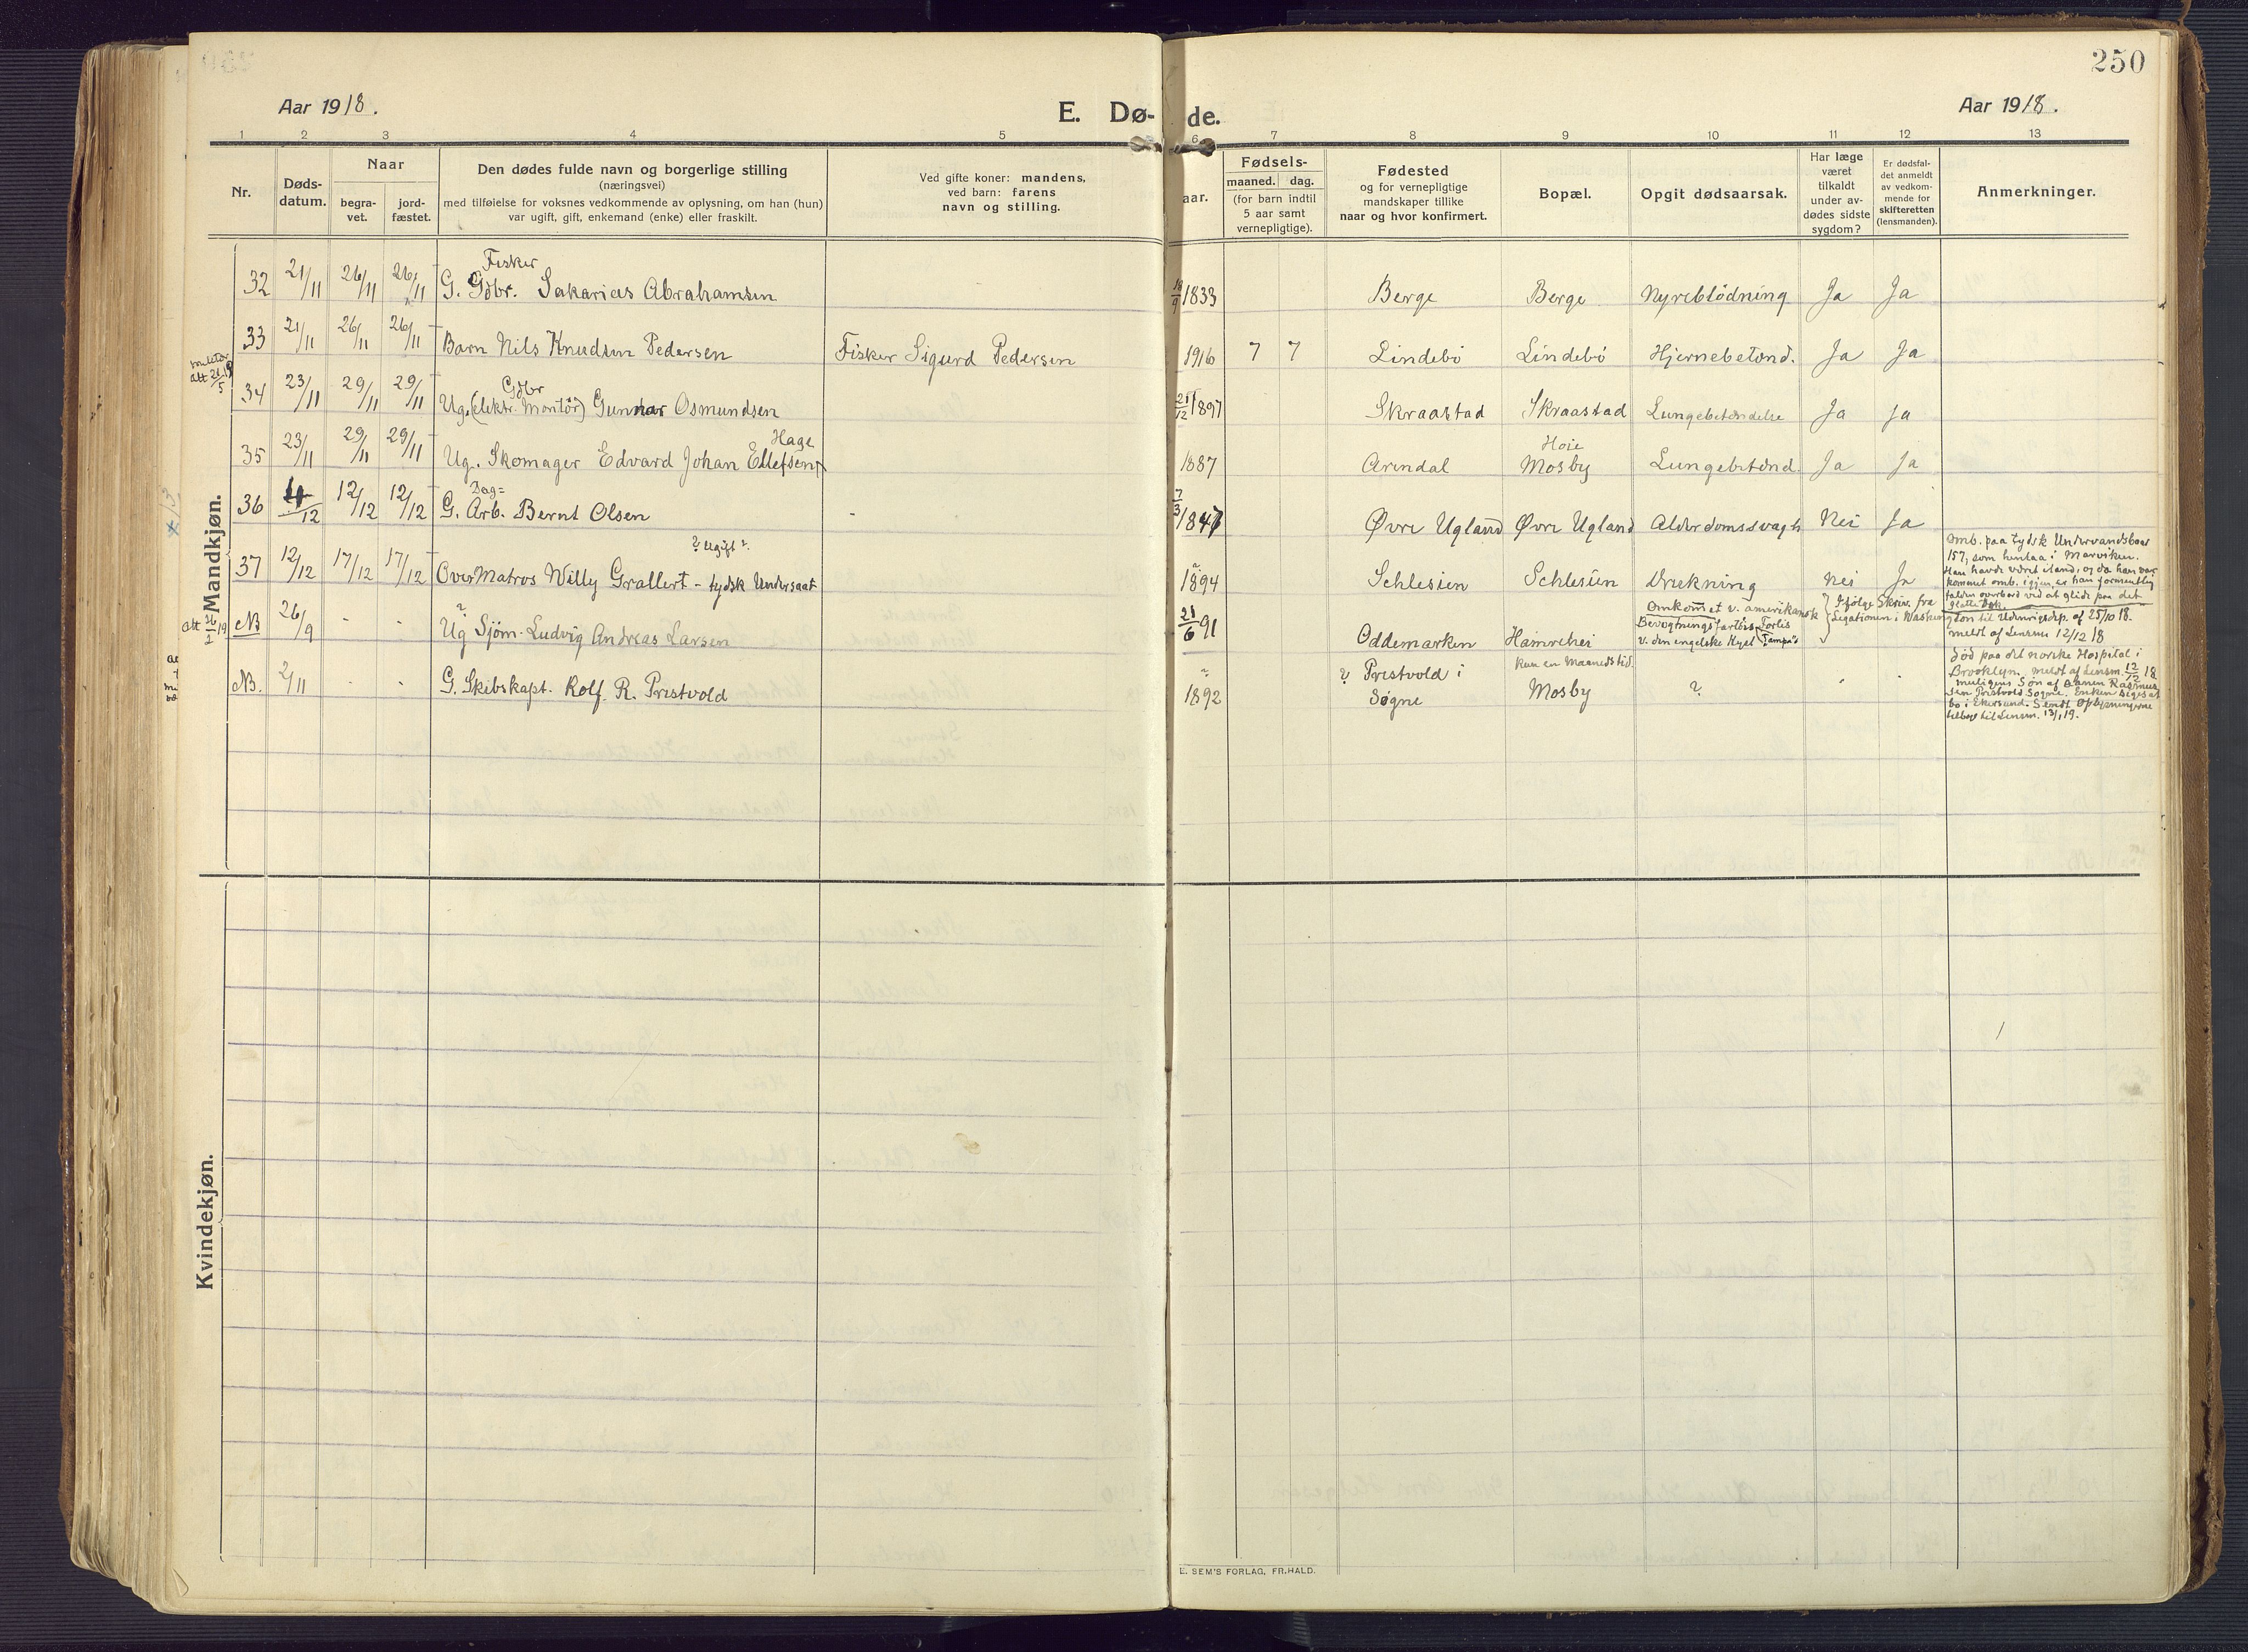 250
Aar 1918.
E. Dø-
de.
Aar 1918.
1 2 3 4 5 6 7 8 9 10 11 12 13
Nr.
Døds-
datum.
Naar
begra-
vet.
jord-
fæstet.
Den dødes fulde navn og borgerlige stilling
(næringsvei)
med tilføielse for voksnes vedkommende av oplysning, om han (hun)
var ugift, gift, enkemand (enke) eller fraskilt.
Ved gifte koner: mandens,
ved barn: farens
navn og stilling.
aar.
Fødsels-
maaned. dag.
(for barn indtil
5 aar samt
vernepligtige).
Fødested
og for vernepligtige
mandskaper tillike
naar og hvor konfirmert.
Bopæl.
Opgit dødsaarsak.
Har læge
været
tilkaldt
under av-
dødes sidste
sygdom?
Er dødsfal-
det anmeldt
av vedkom-
mende for
skifteretten
(lensmanden).
Anmerkninger.
Mandkjøn.
Fisker
32 21/11 26/11 26/11 G. Gdbr. Sakarias Abrahamsen 18/9 1833 Berge Berge Nyreblödning Ja Ja
33 21/11 26/11 26/11 Barn Nils Knudsen Pedersen Fisker Sigurd Pedersen 1916 7 7 Lindebö Lindebö Hjernebetænd. Ja Ja
Gdbr
34 23/11 29/11 29/11 Ug. (elektr. Montör) Gunnar Osmundsen 21/12 1897 Skraastad Skraastad Lungebetændelse Ja Ja
Hage Høie
35 23/11 29/11 29/11 Ug. Skomager Edvard Johan Ellefsen 1887 Arendal Mosby Lungebetænd. Ja Ja
Dag=
36 4/12 12/12 12/12 G. Arb. Bernt Olsen - 7/3 1847 Øvre Ugland Øvre Ugland Alderdomssvagh Nei Ja
? Ugift ?
37 12/12 17/12 17/12 OverMatros Willy Grallert - tydsk Undersaat 1894 Schlesien Schlesien Drukning Nei Ja
Omb. paa tydsk Undervandsbaad
157, som henlaa i Marviken.
Han havde været iland, og da han var
kommet omb. igjen, er han formentlig
falden overbord ved at glide paa det
glatte Dæk.
NB 26/9 - - Ug Sjöm. Ludvig Andreas Larsen 21/6 91 Oddemarken Hamrehei
Omkommet v. amerikansk
Bevogtningsfartöis Forlis
v. den engelske Kyst "Tampa"
Ifölge Skriv. fra
Legationen i Washington til Udenrigsdep. af 25/10 18.
meldt af Lensm 12/12 18
NB. 2/11 - - G. Skibskapt. Rolf. R. Prestvold ? 1892 ? Prestvold i
Søgne
kun en Maanedstid.
Mosby ?
Död paa det norske Hospital i
Brooklyn. meldt af Lensm. 12/12 18
muligens Sön af Aanen Rasmus
sen Prestvold Sogne. Enken siges at
bo i Ekersund. Sendt Oplysningerne
tilbage til Lensm. 13/1 19.
Kvindekjøn.
E. SEM'S FORLAG, FR.HALD.